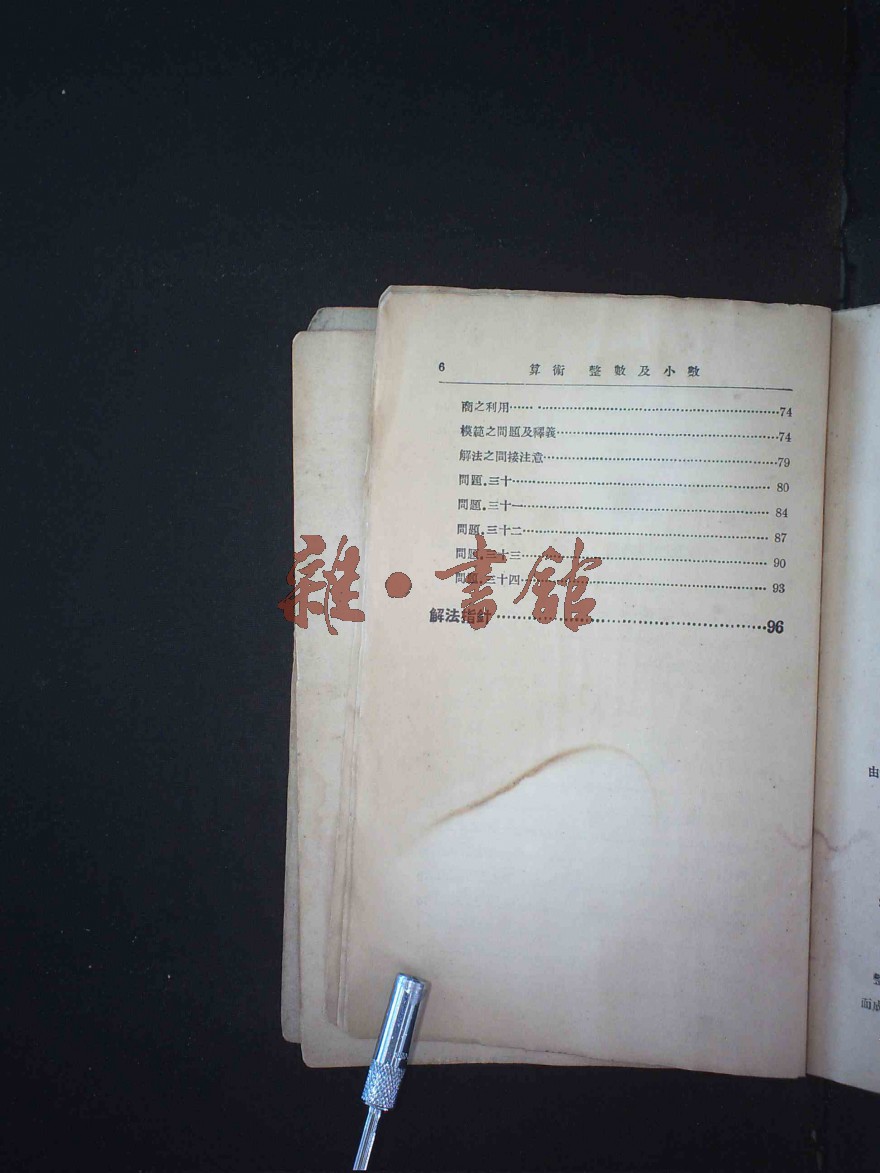 6 算術 整數及小數
商之利用…… ……………………………………74
模範之問題及釋義……………………………………74
解法之間接注意……………………………………79
問題.三十……………………………………80
問題.三十一……………………………………84
問題.三十二……………………………………87
問題.三十三……………………………………90
問題.三十四……………………………………93
解法指針……………………………………96
雜·書館
由
整
而成